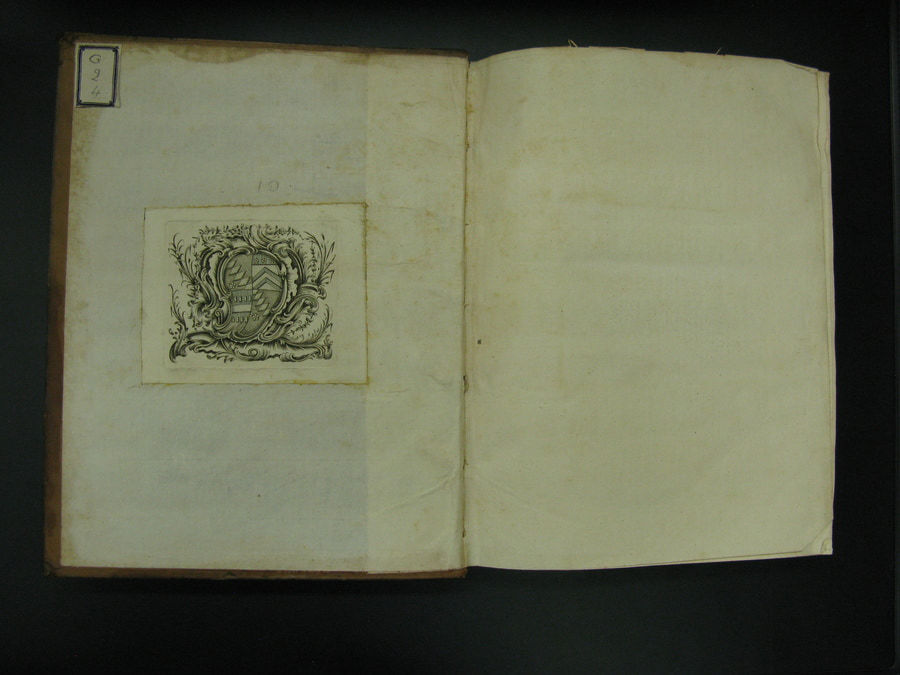 G
2
4
10